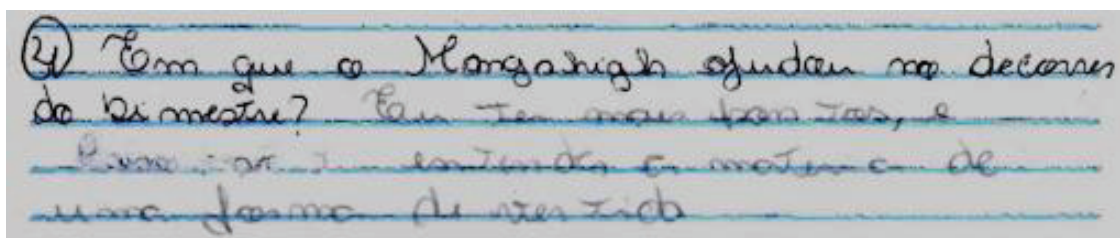 4) Em que o Mangahigh ajudou no decorrer
do bimestre? Eu ter mais pontos, e
entender a materia de
uma forma divertida